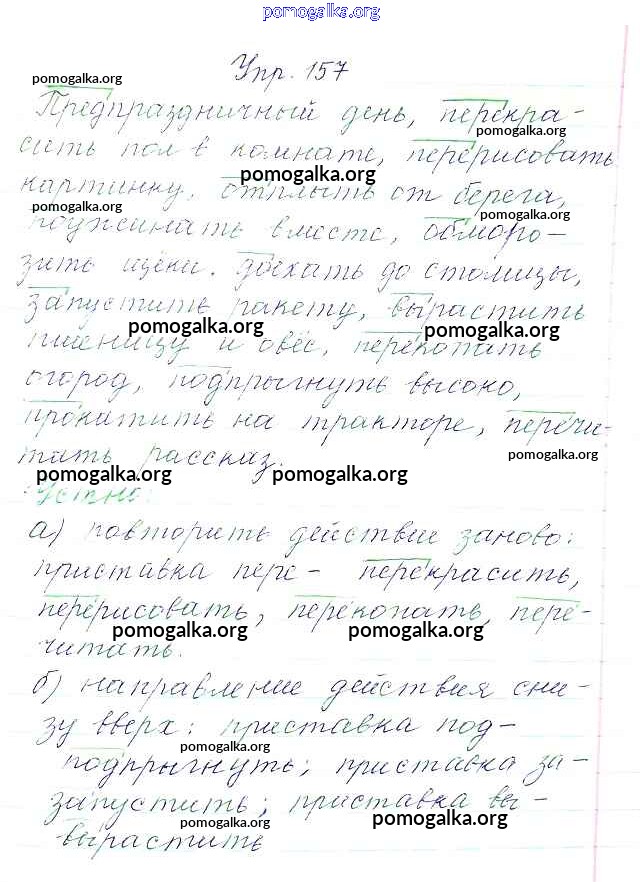 pomogalka.org
Упр. 157
pomogalka.org
Предпраздничный день, перекра-
pomogalka.org
сить пол в комнате, перерисовать
pomogalka.org
картинку. отплыть от берега,
pomogalka.org
pomogalka.org
поужинать вместе, обморо-
зить щёки. заехать до столицы,
запустить ракету, вырастить
pomogalka.org
pomogalka.org
пшеницу и овёс, перекопать
огород, подпрыгнуть высоко,
прокатить на тракторе, перечи-
тать рассказ.
pomogalka.org
pomogalka.org
pomogalka.org
Устно:
а) повторить действие заново:
приставка пере- перекрасить,
перерисовать, перекопать, пере-
pomogalka.org
pomogalka.org
читать.
б) направление действия сни-
зу вверх: приставка под-
pomogalka.org
подпрыгнуть; приставка за-
запустить; приставка вы-
pomogalka.org
pomogalka.org
вырастить